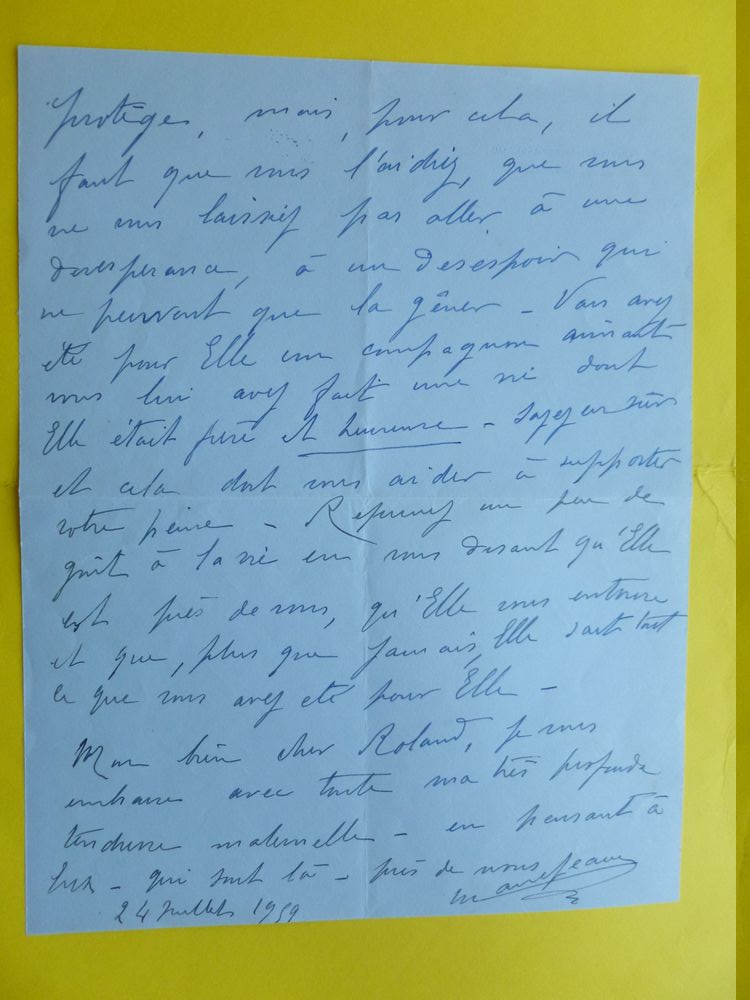 protéger, mais, pour cela, il
faut que vous l'aidiez, que vous
ne vous laissiez pas aller à une
desesperance, à un desespoir qui
ne peuvent que la gêner – Vous avez
été pour Elle un compagnon aimant
vous lui avez fait une vie dont
Elle était fière et heureuse – soyez en sûr
et cela doit vous aider à supporter
votre peine – Reprenez un peu de
goût à la vie en vous disant qu'Elle
est près de vous, qu'Elle vous entoure
et que, plus que jamais, Elle sait tout
ce que vous avez été pour Elle –
Mon bien cher Roland, je vous
embrasse avec toute ma très profonde
tendresse maternelle – en pensant à
Eux – qui sont là – près de nous
24 Juillet 1959